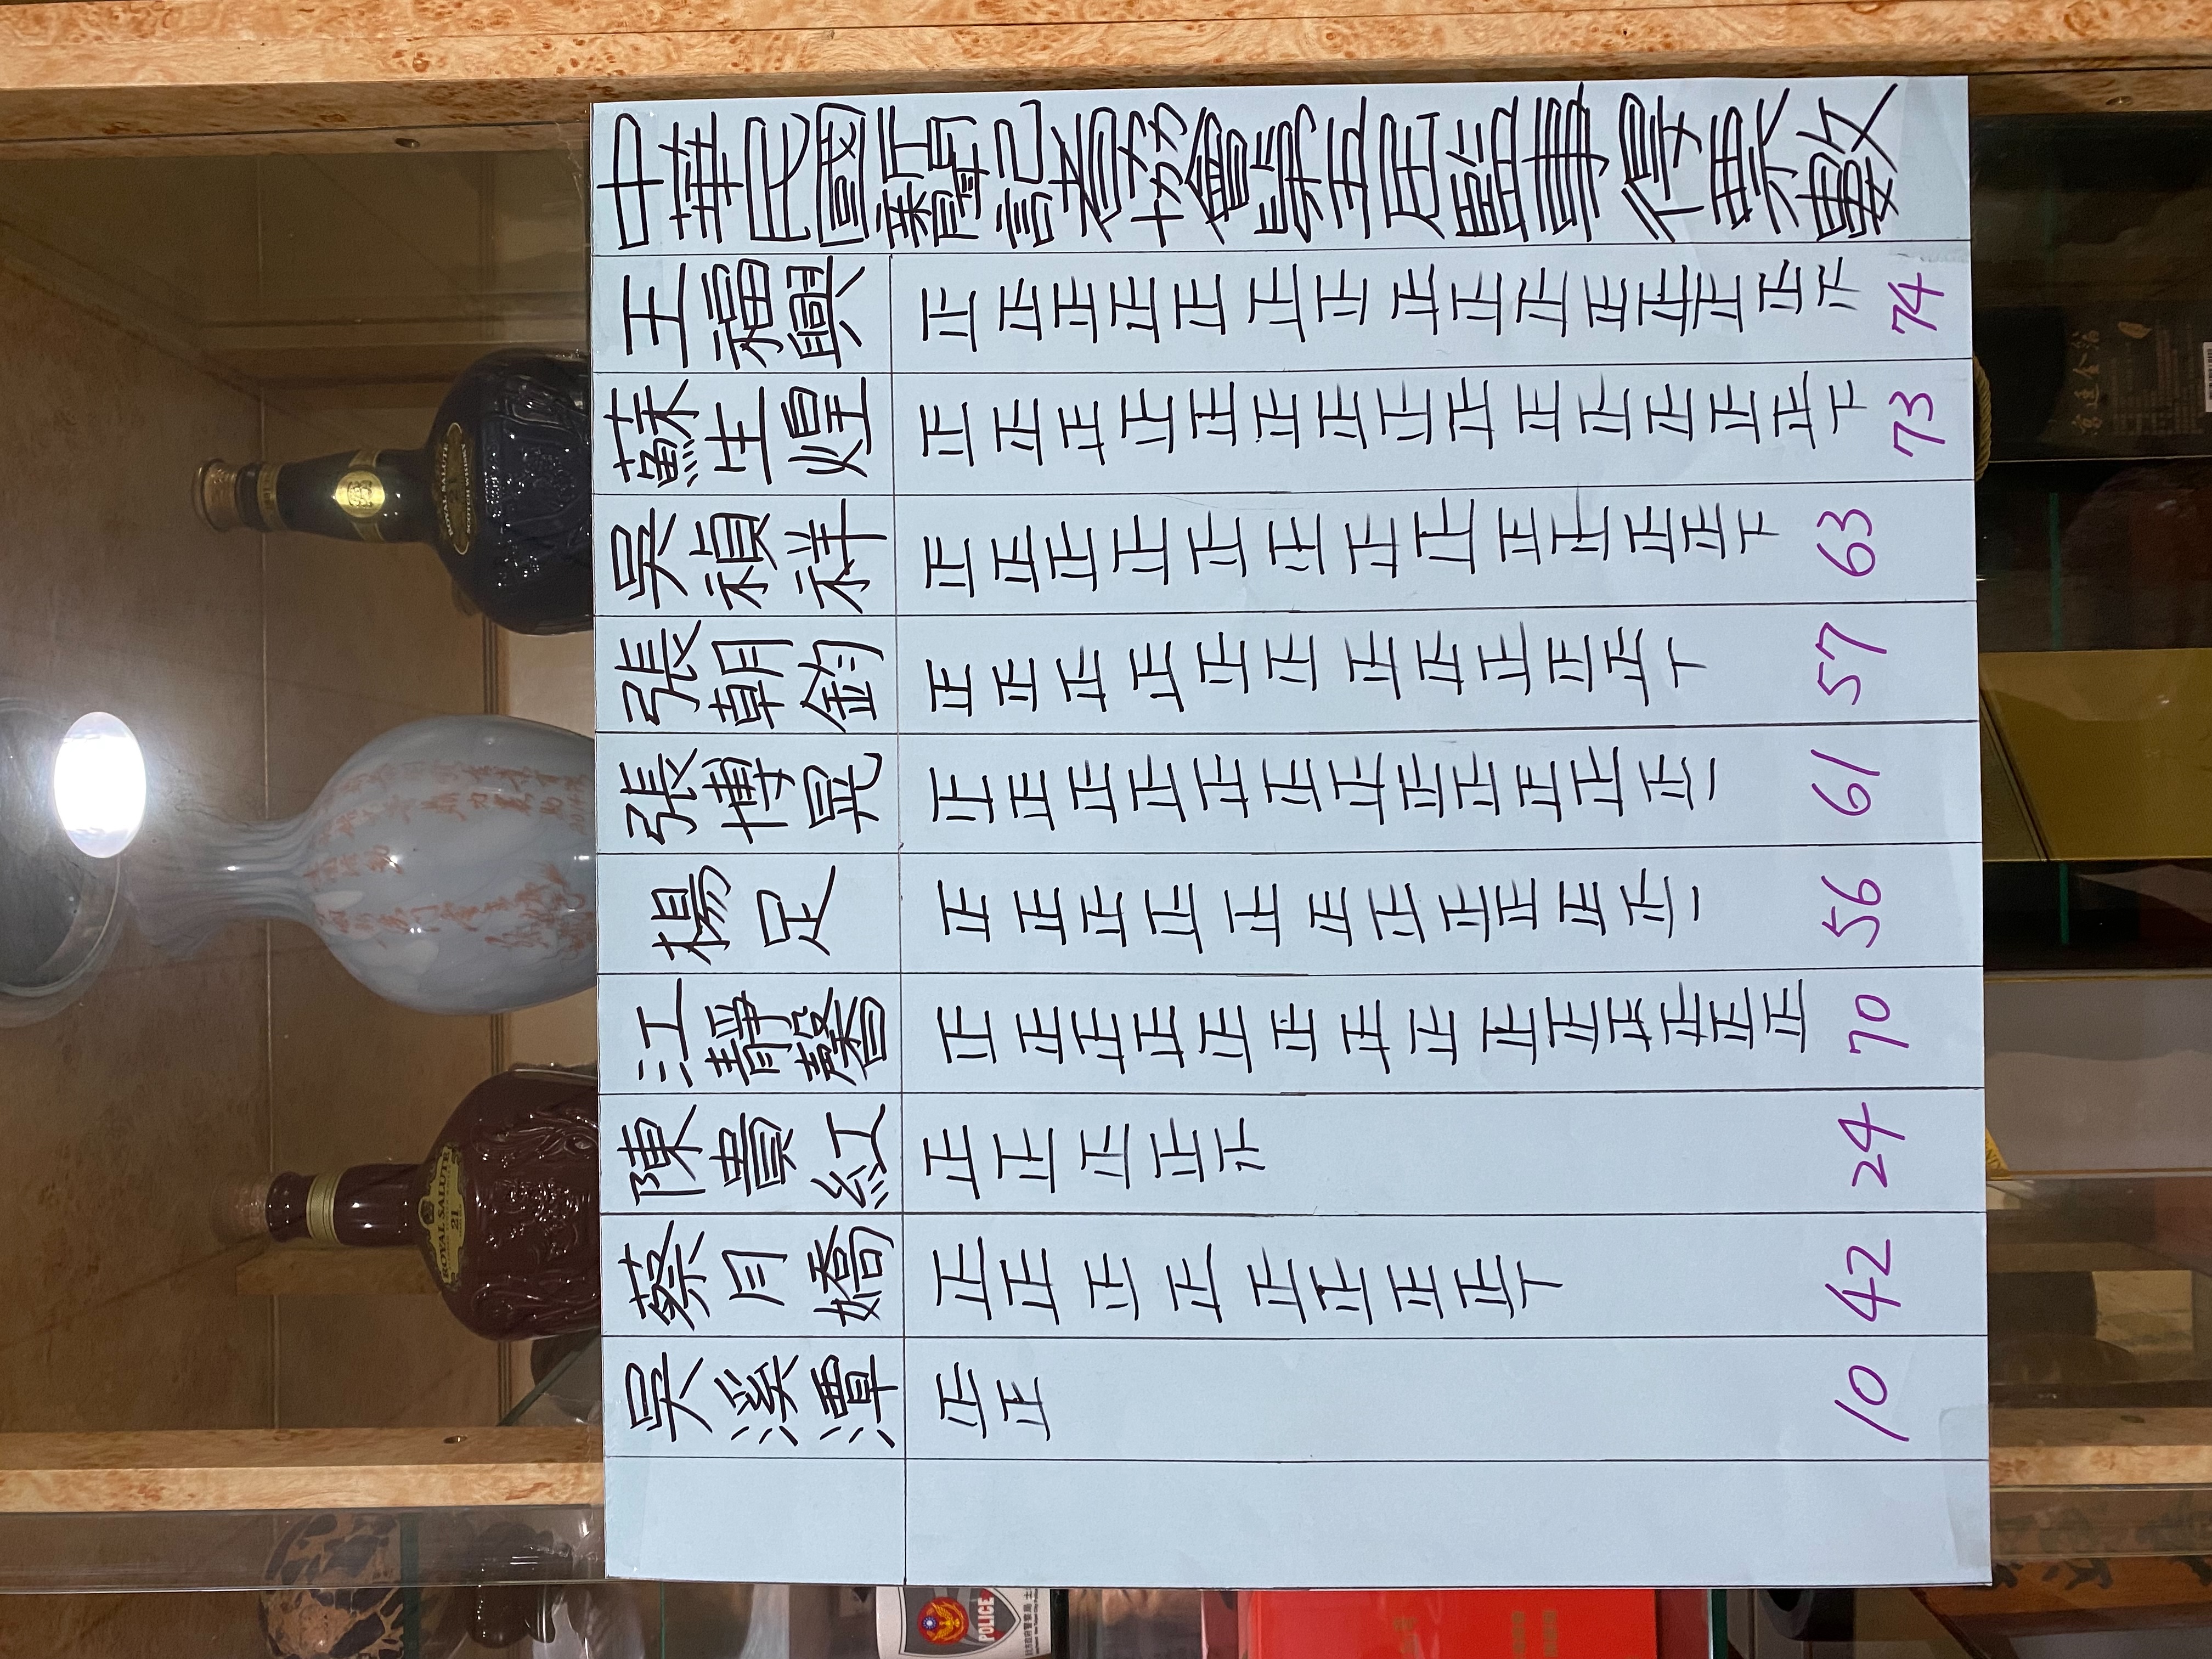 中華民國新聞記者協會第五屆監事得票數
王福興
正正正正正正正正正正正正正正
74
蘇生煌
正正正正正正正正正正正正正正下
73
吳禎祥
正正正正正正正正正正正正下
63
張朝鈞
正正正正正正正正正正正丅
57
張博晃
正正正正正正正正正正正正一
61
楊足
正正正正正正正正正正正一
56
江靜馨
正正正正正正正正正正正正正正
70
陳壽紅
正正正正
24
蔡月嬌
正正正正正正正正丅
42
吳溪潭
正正
10
ROYAL SALUTE
21
SCOTCH WHISKY
ROYAL SALUTE
21
POLICE